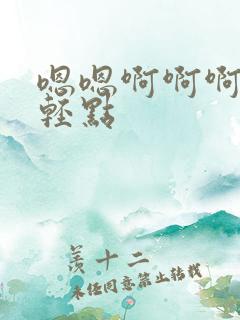 嗯嗯啊啊啊
輕點
羨十二
未经同意禁止转载